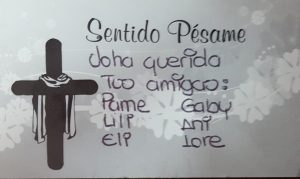 Sentido Pésame
Joha querida
Tus amigas:
Pame Gaby
Lili Ani
Eli Lore